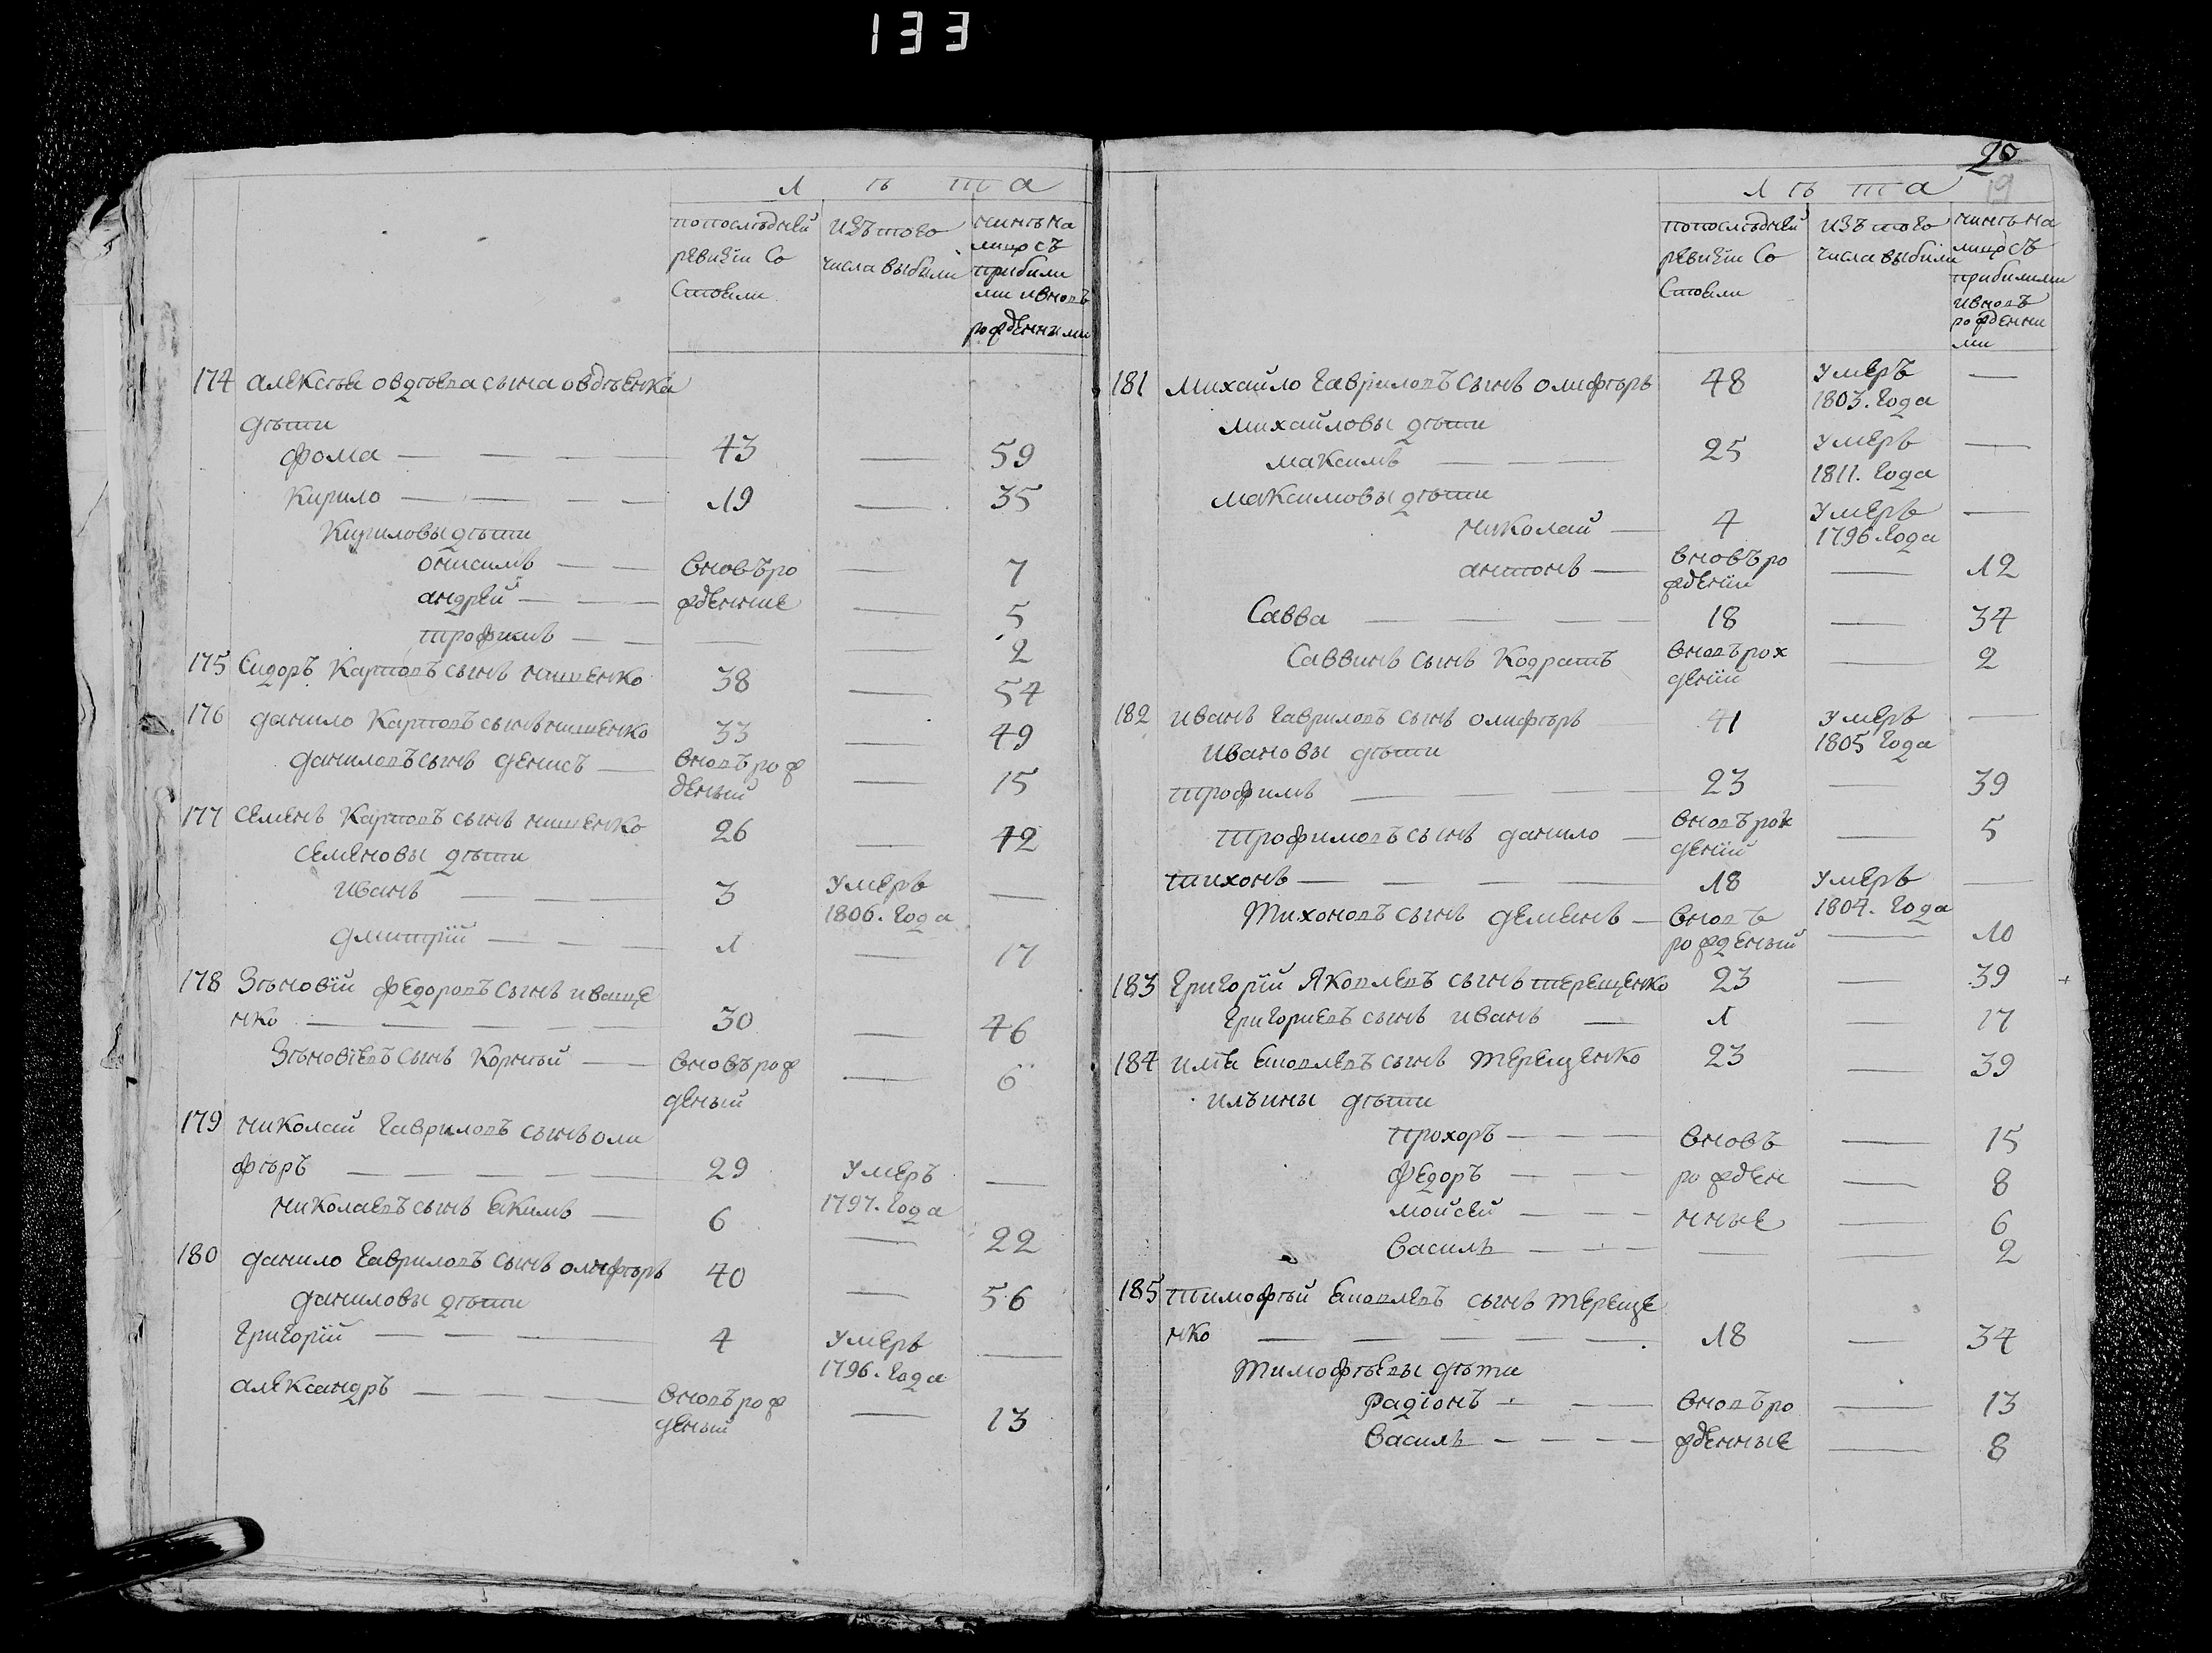 133
л ѣ та
попослѣдней
ревизіи Со
Стояли
изъ того
числа выбыли
нинѣ на
лицо съ
прибили
ми ивновъ
рожденными
174 алексѣя овдѣева сына овдѣенка
дѣти
фома — — — — 43 — 59
Кирило — — — — 19 — 35
Кириловы дѣти
онисимъ — — вновъ ро — 7
андрей — — — жденние — 5
трофимъ — — — — 2
175 Сидоръ Карповъ сынъ нищенко 38 — 54
176 данило Карповъ сынъ нищенко 33 — 49
даниловъ сынъ денисъ — вновъ рож — 15
деный
177 семенъ Карповъ сынъ нищенко 26 — 42
семеновы дѣти
иванъ — — — 3 умеръ —
1806. года
дмитрій — — — 1 — 17
178 Зѣновій федоровъ сынъ иваще
нко — — — — 30 — 46
Зѣновіевъ сынъ Корнѣй — вновъ рож — 6
деный
179 николай гавриловъ сынъ оли
фѣръ — — — — 29 умеръ —
николаевъ сынъ екимъ — 6 1797. года
— 22
180 данило гавриловъ сынъ олифѣръ 40 — 56
даниловы дѣти
григорій — — — — 4 умеръ —
1796. года
александръ — — — — вновъ рож — 13
деный
20
19
л ѣ та
попослѣдней
ревизіи Со
Стояли
изъ того
числа выбили
нинѣ на
лицо съ
прибилими
ивновъ
рожденни
ми
181 михайло гавриловъ сынъ олифѣръ 48 умеръ —
1803. года
михайловы дѣти
максимъ — — — 25 умеръ —
1811. года
максимовы дѣти
николай — 4 умеръ —
1796 года
антонъ — вновъ ро — 12
жденіи
Савва — — — — 18 — 34
Саввинъ сынъ Кодратъ вновъ рож — 2
деній
182 иванъ гавриловъ сынъ олифѣръ — 41 умеръ —
1805 года
ивановы дѣти
трофимъ — — — 23 — 39
трофимовъ сынъ данило — вновъ рож — 5
деній
тихонъ — — — — 18 умеръ —
1804. года
тихоновъ сынъ деменъ — вновъ
рожденый — 10
183 григорій Яковлевъ сынъ терещенко 23 — 39
григориевъ сынъ иванъ — 1 — 17
184 илѣя яковлевъ сынъ терещенко 23 — 39
илъины дѣти
прохоръ — — — вновъ — 15
федоръ — — — рожден — 8
мойсей — — — нные — 6
василь — — — — 2
185 тимофѣй яковлевъ сынъ тереще
нко — — — — — 18 — 34
тимофѣевы дѣти
радіонъ — — вновъ ро — 13
василь — — — жденные — 8